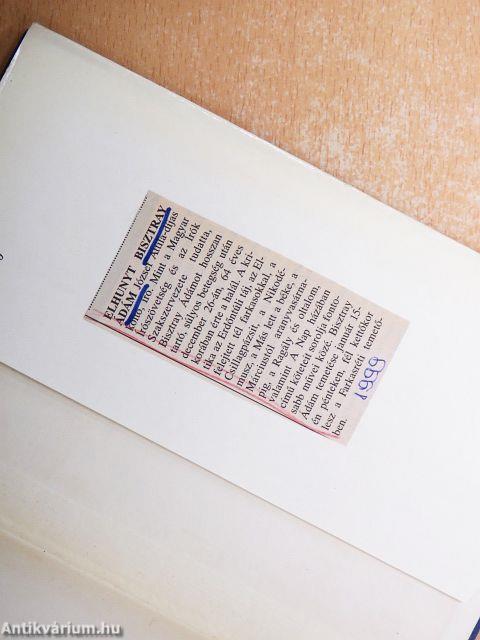 ELHUNYT BISZTRAY
ÁDÁM József Attila-díjas
költő, író. Mint a Magyar
Írószövetség és az Írók
Szakszervezete tudatta,
Bisztray Ádámot hosszan
tartó, súlyos betegség után
december 26-án, 64 éves
korában érte a halál. A kri-
tika az Erdőntúli táj, az El-
felejtett tél farkasokkal, a
Csillagpázsit, a Nikodé-
musz, a Más lett a béke, a
Márciustól aranyvasárna-
pig, a Fogály és oltalom,
valamint A Nap házában
című köteteit sorolta fonto-
sabb művei közé. Bisztray
Ádám temetése január 15-
én pénteken, fél kettőkor
lesz a Farkasréti temető-
ben.
1999
Antikvárium.hu